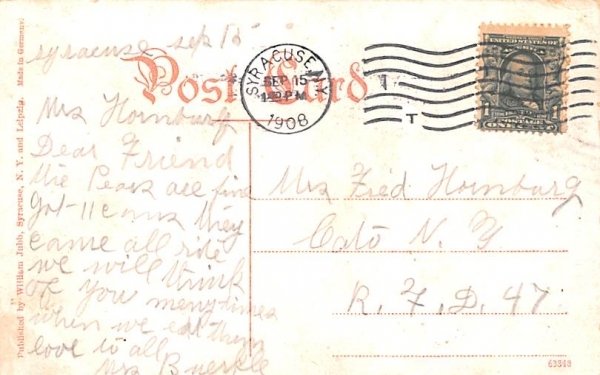 Syracuse Sep 15
Post Card
Mrs Hornburg
Dear Friend
the Pears are fine
got 11 cans they
came all rite
we will think
of you meny times
when we eat them
love to all
Mrs Buerkle
SYRACUSE, N.Y.
SEP 15
1908
T
POSTAGE
ONE CENT
Mrs Fred Hornburg
Cato N. Y
R. F. D. 47
Published by William Jubb, Syracuse, N. Y. and Leipzig. Made in Germany.